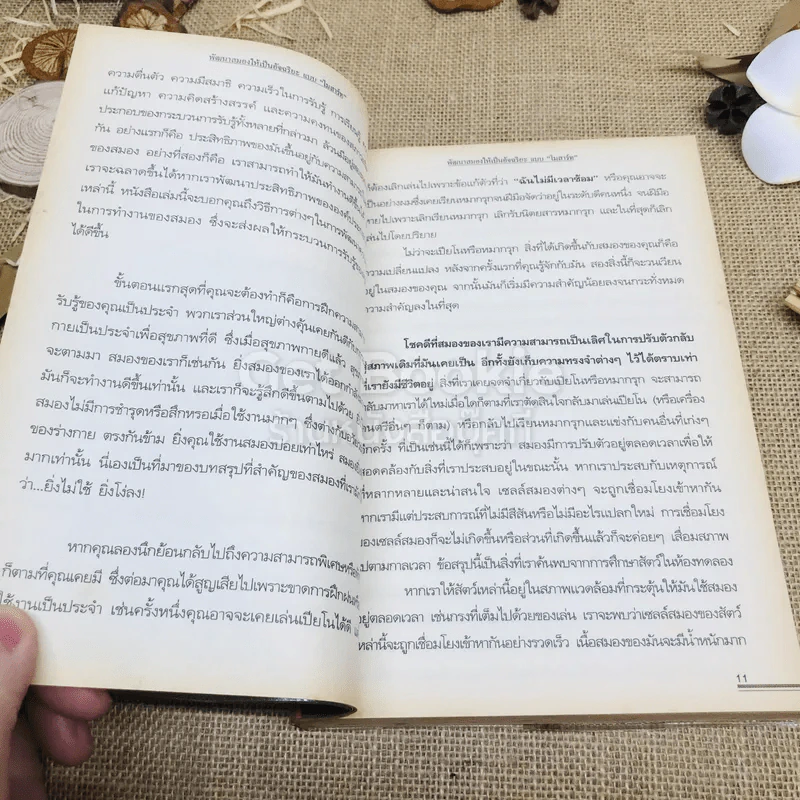 พัฒนาสมองให้เป็นอัจฉริยะ แบบ "ไอสกรีต"
ความตื่นตัว ความมีสมาธิ ความเร็วในการรับรู้ การเรียนรู้
แก้ปัญหา ความคิดสร้างสรรค์ และความคงทนของ
ประกอบของกระบวนการรับรู้ทั้งหลายที่กล่าวมา ล้วนมีอยู่
กัน อย่างแรกก็คือ ประสิทธิภาพของมันขึ้นอยู่กับความ
ของสมอง อย่างที่สองก็คือ เราสามารถทำให้มันทำงานดีขึ้น
เราจะฉลาดขึ้นได้หากเราพัฒนาประสิทธิภาพขององค์
เหล่านี้ หนังสือเล่มนี้จะบอกคุณถึงวิธีการต่างๆในการพัฒนา
ในการทำงานของสมอง ซึ่งจะส่งผลให้กระบวนการรับรู้
ได้ดีขึ้น
ขั้นตอนแรกสุดที่คุณจะต้องทำก็คือการฝึกความ
รับรู้ของคุณเป็นประจำ พวกเราส่วนใหญ่ต่างคุ้นเคยกันดีกับ
กายเป็นประจำเพื่อสุขภาพที่ดี ซึ่งเมื่อสุขภาพกายดีแล้ว
จะตามมา สมองของเราก็เช่นกัน ยิ่งสมองของเราได้ออกกำลัง
มันก็จะทำงานดีขึ้นเท่านั้น และเราก็จะรู้สึกดีขึ้นตามไปด้วย
สมองไม่มีการชำรุดหรือสึกหรอเมื่อใช้งานมากๆ ซึ่งต่างกับอวัยวะ
ของร่างกาย ตรงกันข้าม ยิ่งคุณใช้งานสมองบ่อยเท่าไหร่
มากเท่านั้น นี่เองเป็นที่มาของบทสรุปที่สำคัญของสมองที่เรา
ว่า...ยิ่งไม่ใช้ ยิ่งโง่ลง!
หากคุณลองนึกย้อนกลับไปถึงความสามารถพิเศษ
ก็ตามที่คุณเคยมี ซึ่งต่อมาคุณได้สูญเสียไปเพราะขาดการฝึกฝน
ใช้งานเป็นประจำ เช่นครั้งหนึ่งคุณอาจจะเคยเล่นเปียโนได้ดี
ต้องเลิกเล่นไปเพราะข้อแก้ตัวที่ว่า "ฉันไม่มีเวลาซ้อม" หรือคุณอาจจะ
เป็นอย่างผมซึ่งเคยเรียนหมากรุกจนมีฝีมือจัดว่าอยู่ในระดับดีคนหนึ่ง จนมีฝีมือ
ไปเพราะเลิกเรียนหมากรุก เลิกรับนิตยสารหมากรุก และในที่สุดก็เลิก
เล่นไปโดยปริยาย
ไม่ว่าจะเปียโนหรือหมากรุก สิ่งที่ได้เกิดขึ้นกับสมองของคุณก็คือ
ความเปลี่ยนแปลง หลังจากครั้งแรกที่คุณรู้จักกับมัน สองสิ่งนี้ก็จะวนเวียน
อยู่ในสมองของคุณ จากนั้นมันก็เริ่มมีความสำคัญน้อยลงจนกระทั่งหมด
ความสำคัญลงในที่สุด
โชคดีที่สมองของเรามีความสามารถเป็นเลิศในการปรับตัวกลับ
สู่สภาพเดิมที่มันเคยเป็น อีกทั้งยังเก็บความทรงจำต่างๆ ไว้ได้ตราบเท่า
ที่เรายังมีชีวิตอยู่ สิ่งที่เราเคยจดจำเกี่ยวกับเปียโนหรือหมากรุก จะสามารถ
กลับมาหาเราได้ใหม่เมื่อใดก็ตามที่เราตัดสินใจกลับมาเล่นเปียโน (หรือเครื่อง
ดนตรีอื่นๆ ก็ตาม) หรือกลับไปเรียนหมากรุกและแข่งกับคนอื่นที่เก่งๆ
อีกครั้ง ที่เป็นเช่นนี้ได้ก็เพราะว่า สมองมีการปรับตัวอยู่ตลอดเวลาเพื่อให้
สอดคล้องกับสิ่งที่เราประสบอยู่ในขณะนั้น หากเราประสบกับเหตุการณ์
ที่หลากหลายและน่าสนใจ เซลล์สมองต่างๆ จะถูกเชื่อมโยงเข้าหากัน
หากเรามีแต่ประสบการณ์ที่ไม่มีสีสันหรือไม่มีอะไรแปลกใหม่ การเชื่อมโยง
ของเซลล์สมองก็จะไม่เกิดขึ้นหรือส่วนที่เกิดขึ้นแล้วก็จะค่อยๆ เสื่อมสภาพ
ไปตามกาลเวลา ข้อสรุปนี้เป็นสิ่งที่เราค้นพบจากการศึกษาสัตว์ในห้องทดลอง
หากเราให้สัตว์เหล่านี้อยู่ในสภาพแวดล้อมที่กระตุ้นให้มันใช้สมอง
อยู่ตลอดเวลา เช่นกรงที่เต็มไปด้วยของเล่น เราจะพบว่าเซลล์สมองของสัตว์
เหล่านี้จะถูกเชื่อมโยงเข้าหากันอย่างรวดเร็ว เนื้อสมองของมันจะมีน้ำหนักมาก
11